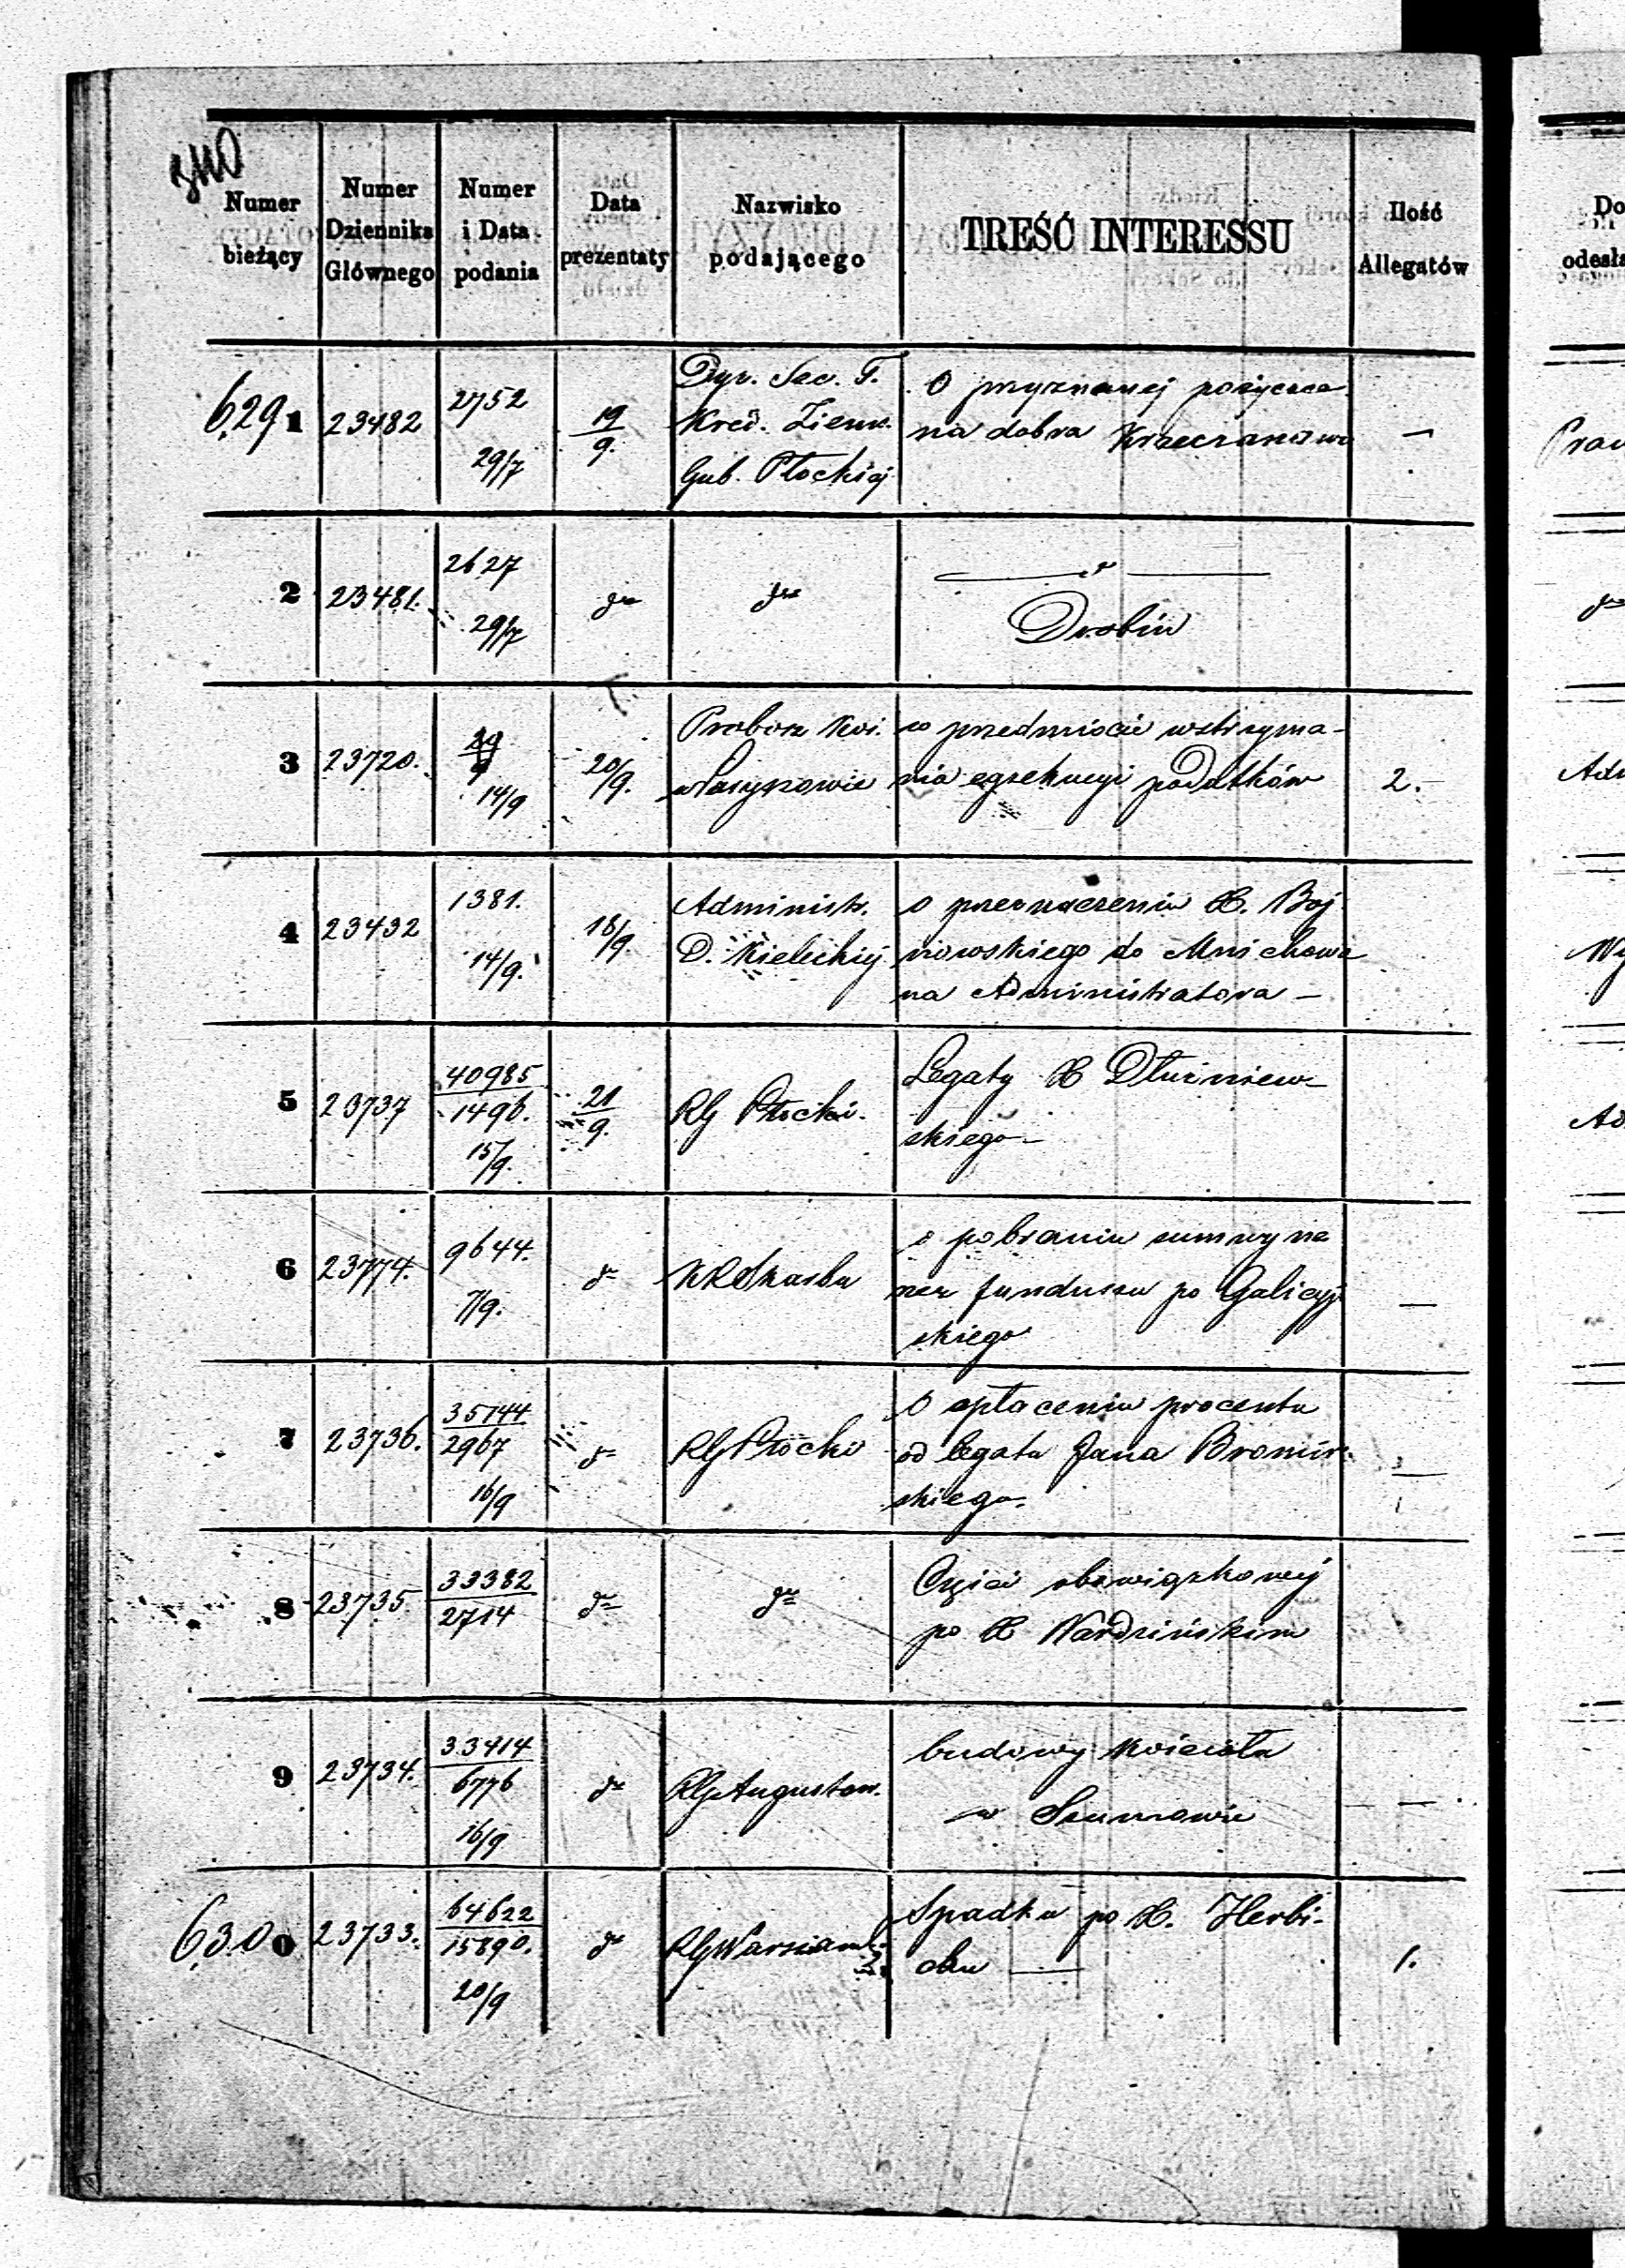 340
Numer bieżący
Numer Dziennika Głównego
Numer i Data podania
Data prezentaty
Nazwisko podającego
TREŚĆ INTERESSU
Ilość Allegatów
Do
odesła
629 1 23482 2752 29/7 19/9.
Dyr. Szc. T.
Kred. Ziems.
Gub. Płockiej
O przyznanej pożyczce
na dobra
—
2 23481. 2627 29/7 dto dto
dto
Drobin
dto
3 23720. 14/9 20/9.
Probosz
w przedmiocie wstrzyma-
nia egzekucyi podatków
2.
4 23432 1381. 14/9. 18/9.
Administr.
D. Kieleckiej
o przeznaczeniu X. Boj-
nowskiego do Mnichowa
na Administratora —
5 23737 40985/1496. 15/9. 21/9.
RG Płocki.
Legaty X Dłużniew-
skiego —
6 23774. 9644. 7/9. dto
KRSkarbu
o pobraniu summy na
rzecz funduszu po Galicyj-
skiego
—
7 23736. 35744/2967 16/9 dto
RG Płocki
O opłaceniu procentu
od legatu Jana Bromir-
skiego.
—
8 23735. 33382/2714 dto dto
Części obowiązkowej
po X Nardzińskim
9 23734. 33414/6776 16/9 dto
RG Augustow.
budowy Kościoła
w
—
630 0 23733. 64622/15890. 20/9 dto
RG Warszaws.
Spadku po X. Herbi-
chu —
1.